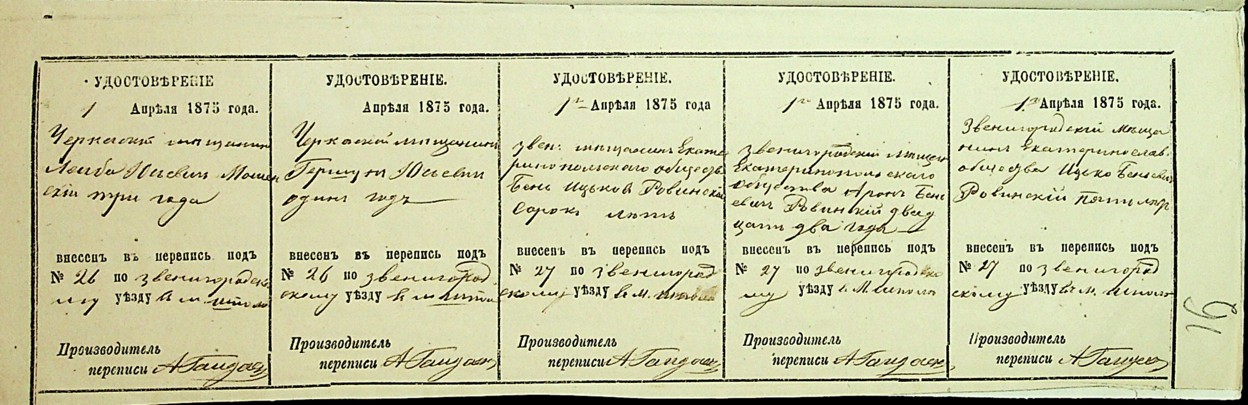 УДОСТОВѢРЕНІЕ
1 Апрѣля 1875 года.
Черкаскій мѣщанинъ
Лейба Юсевич Мошен
скій три года
внесенъ въ перепись подъ
№ 26 по звенигородско
му уѣзду в м.
Производитель
переписи
УДОСТОВѢРЕНІЕ.
Апрѣля 1875 года.
Черкаской мѣщанинъ
Гершун Юсевич
одинъ годъ
внесенъ въ перепись подъ
№ 26 по звенигород
скому уѣзду в м
Производитель
переписи
УДОСТОВѢРЕНІЕ.
1го Апрѣля 1875 года
звен: мѣщанинъ Екате
ринопольского обществ
Бень Ицьков Ровинскій
Сорокъ лѣтъ
внесенъ въ перепись подъ
№ 27 по звенигород
скому уѣзду в м. шпола
Производитель
переписи
УДОСТОВѢРЕНІЕ.
1го Апрѣля 1875 года.
звенигородскій мѣщан
Екатеринопольского
общества Аронъ Бень
евич Ровинскій двад
цать два года
внесенъ въ перепись подъ
№ 27 по звенигородско
му уѣзду в М шполы
Производитель
переписи
УДОСТОВѢРЕНІЕ.
1го Апрѣля 1875 года.
Звенигородскій мѣща
нинъ
общества Ицько Беневич
Ровинскій пять лѣт
внесенъ въ перепись подъ
№ 27 по звенигород
скому уѣзду в м. шполы
Производитель
переписи
91